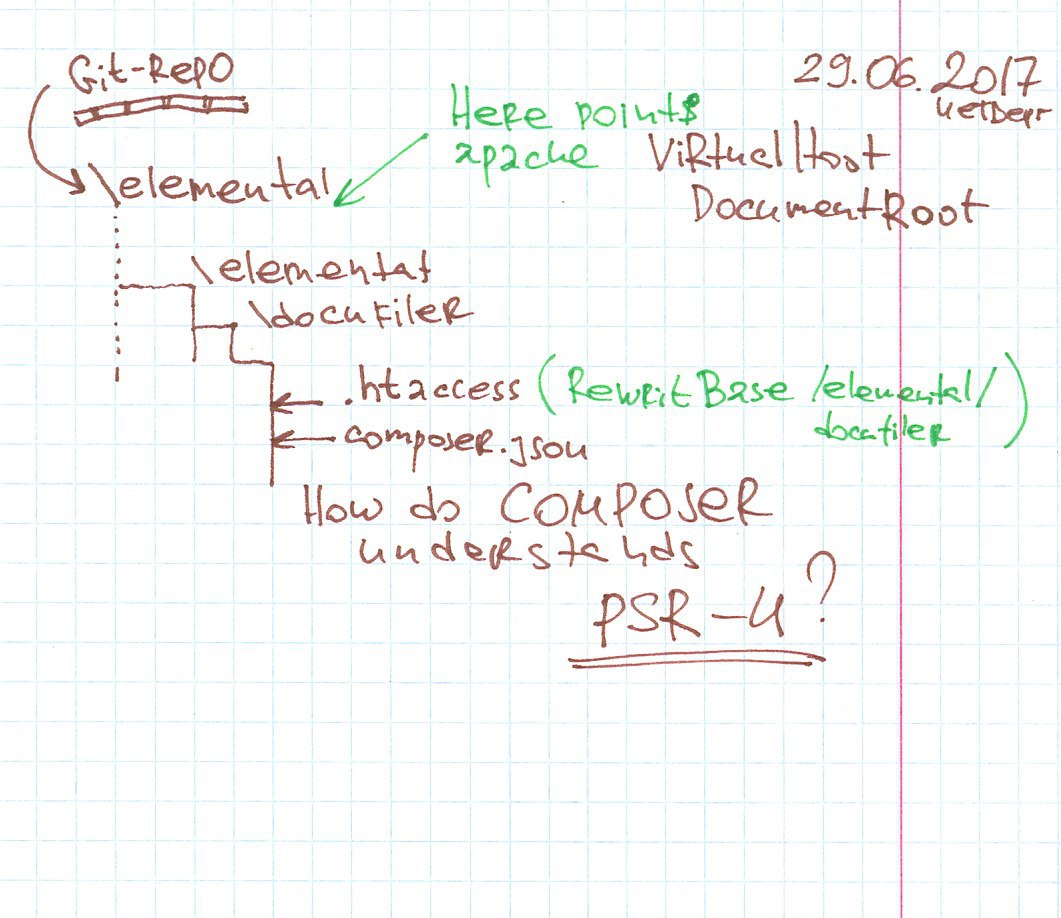 Git-Repo
29.06.2017
четверг
Here points
apache
VirtualHost
DocumentRoot
\elemental
\elemental
\docufiler
.htaccess (RewritBase /elemental/
docufiler)
composer.json
How do COMPOSER
understands
PSR-4?